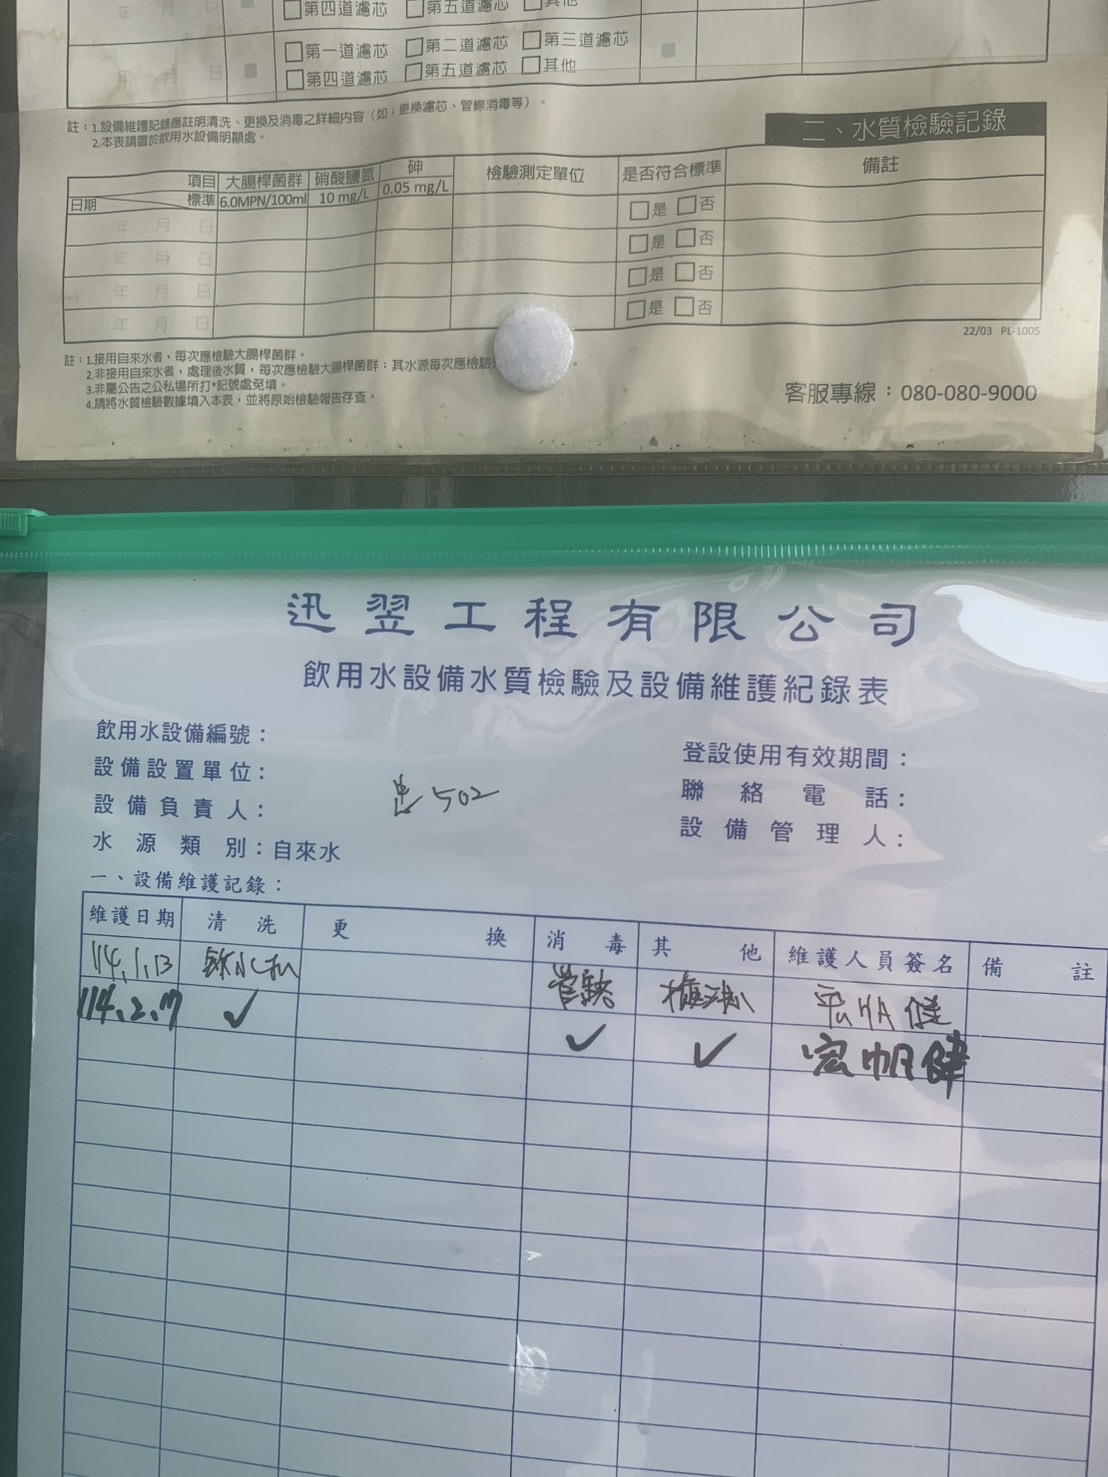 年 月 日 □第四道濾芯 □第五道濾芯 □其他
年 月 日 □第一道濾芯 □第二道濾芯 □第三道濾芯
□第四道濾芯 □第五道濾芯 □其他
註：1.設備維護記錄應註明清洗、更換及消毒之詳細內容（如：更換濾芯、管線消毒等）。
2.本表請置於飲用水設備明顯處。
二、水質檢驗記錄
項目 大腸桿菌群 硝酸鹽氮 砷 檢驗測定單位 是否符合標準 備註
日期 標準 6.0MPN/100ml 10 mg/L 0.05 mg/L
年 月 日 □是 □否
年 月 日 □是 □否
年 月 日 □是 □否
年 月 日 □是 □否
22/03 PL-1005
註：1.接用自來水者，每次應檢驗大腸桿菌群。
2.非接用自來水者，處理後水質，每次應檢驗大腸桿菌群：其水源每次應檢驗
3.非屬公告之公私場所打*記號處免填。
4.請將水質檢驗數據填入本表，並將原始檢驗報告存查。
客服專線：080-080-9000
迅翌工程有限公司
飲用水設備水質檢驗及設備維護紀錄表
飲用水設備編號： 登設使用有效期間：
設備設置單位： 聯絡電話：
忠502
設備負責人： 設備管理人：
水源類別：自來水
一、設備維護記錄：
維護日期 清洗 更換 消毒 其他 維護人員簽名 備註
114.1.13 飲水机 管路
114.2.17 ✓ ✓ ✓